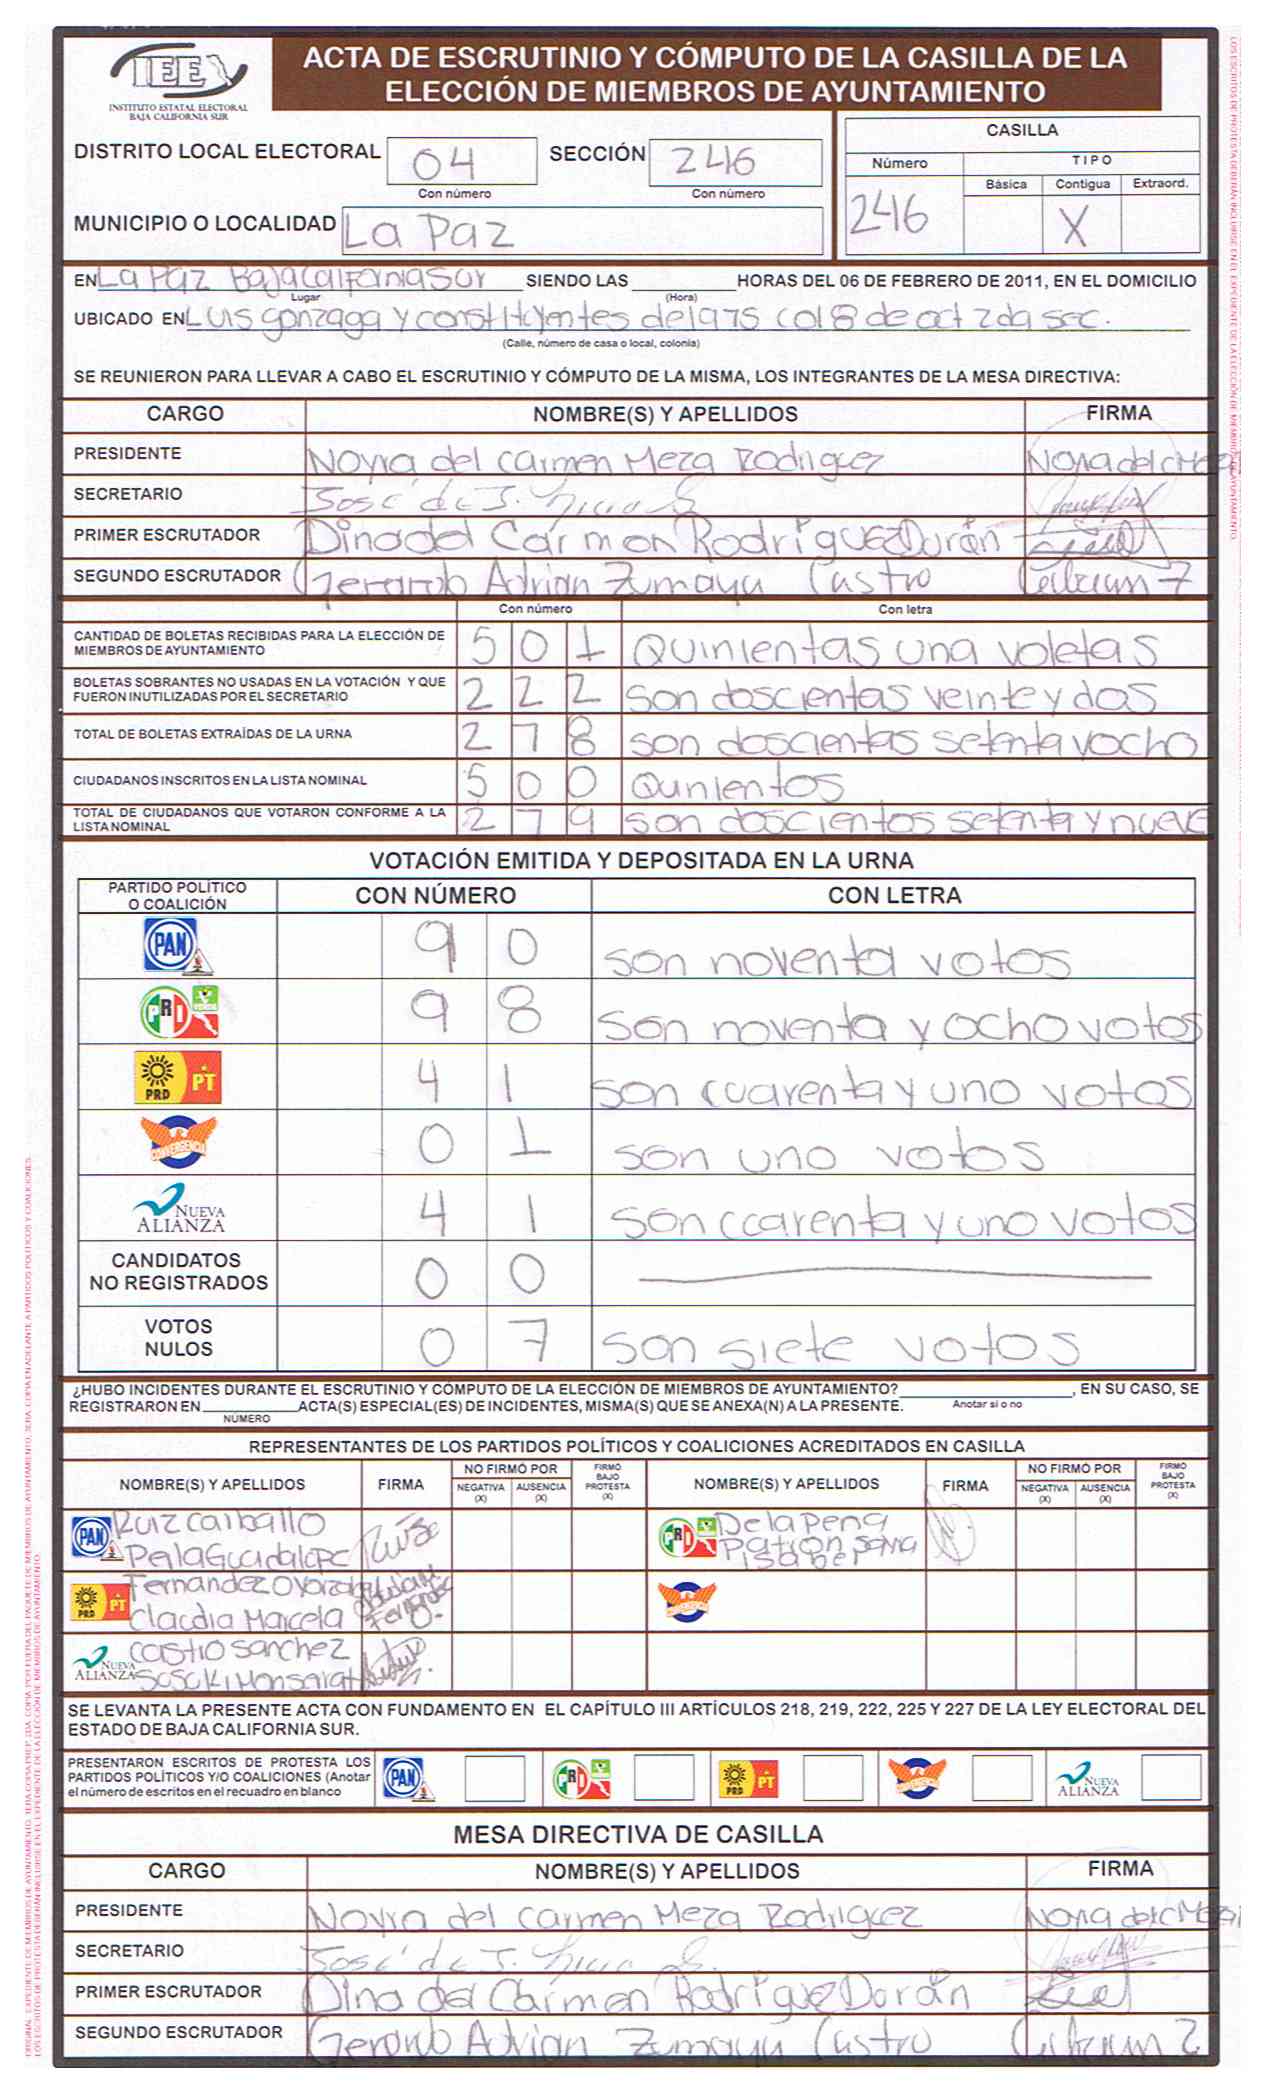 IEE
INSTITUTO ESTATAL ELECTORAL
BAJA CALIFORNIA SUR
ACTA DE ESCRUTINIO Y CÓMPUTO DE LA CASILLA DE LA
ELECCIÓN DE MIEMBROS DE AYUNTAMIENTO
DISTRITO LOCAL ELECTORAL 04 SECCIÓN 246
Con número Con número
MUNICIPIO O LOCALIDAD La Paz
CASILLA
Número TIPO
Básica Contigua Extraord.
246 X
EN La Paz Baja California Sur SIENDO LAS HORAS DEL 06 DE FEBRERO DE 2011, EN EL DOMICILIO
Lugar (Hora)
UBICADO EN Luis gonzaga y constituyentes de 1975 col 8 de oct 2da sec.
(Calle, número de casa o local, colonia)
SE REUNIERON PARA LLEVAR A CABO EL ESCRUTINIO Y CÓMPUTO DE LA MISMA, LOS INTEGRANTES DE LA MESA DIRECTIVA:
CARGO NOMBRE(S) Y APELLIDOS FIRMA
PRESIDENTE Noyra del Carmen Meza Rodriguez
SECRETARIO José de J.
PRIMER ESCRUTADOR Dina del Carmen Rodríguez Durán
SEGUNDO ESCRUTADOR Gerardo Adrian Zumaya Castro
Con número Con letra
CANTIDAD DE BOLETAS RECIBIDAS PARA LA ELECCIÓN DE
MIEMBROS DE AYUNTAMIENTO 501 Quinientas una voletas
BOLETAS SOBRANTES NO USADAS EN LA VOTACIÓN Y QUE
FUERON INUTILIZADAS POR EL SECRETARIO 222 son doscientas veinte y dos
TOTAL DE BOLETAS EXTRAÍDAS DE LA URNA 278 son doscientas setenta yocho
CIUDADANOS INSCRITOS EN LA LISTA NOMINAL 500 Qunientos
TOTAL DE CIUDADANOS QUE VOTARON CONFORME A LA
LISTA NOMINAL 279 son doscientos setenta y nueve
VOTACIÓN EMITIDA Y DEPOSITADA EN LA URNA
PARTIDO POLÍTICO
O COALICIÓN CON NÚMERO CON LETRA
PAN 9 0 son noventa votos
PRI VERDE 9 8 son noventa y ocho votos
PRD PT 4 1 son cuarenta y uno votos
CONVERGENCIA 0 1 son uno votos
NUEVA ALIANZA 4 1 son ccarenta y uno votos
CANDIDATOS
NO REGISTRADOS 0 0
VOTOS
NULOS 0 7 son siete votos
¿HUBO INCIDENTES DURANTE EL ESCRUTINIO Y CÓMPUTO DE LA ELECCIÓN DE MIEMBROS DE AYUNTAMIENTO? , EN SU CASO, SE
REGISTRARON EN ACTA(S) ESPECIAL(ES) DE INCIDENTES, MISMA(S) QUE SE ANEXA(N) A LA PRESENTE. Anotar si o no
NÚMERO
REPRESENTANTES DE LOS PARTIDOS POLÍTICOS Y COALICIONES ACREDITADOS EN CASILLA
NOMBRE(S) Y APELLIDOS FIRMA NO FIRMÓ POR NEGATIVA (X) AUSENCIA (X) FIRMÓ BAJO PROTESTA (X) NOMBRE(S) Y APELLIDOS FIRMA NO FIRMÓ POR NEGATIVA (X) AUSENCIA (X) FIRMÓ BAJO PROTESTA (X)
PAN Ruiz Carballo
Perla Guadalupe
PRI De la Peña
Patron
Isabel
PRD PT Fernandez
Claudia Marcela
CONVERGENCIA
NUEVA ALIANZA Castro Sanchez
PRESENTE
SE LEVANTA LA PRESENTE ACTA CON FUNDAMENTO EN EL CAPÍTULO III ARTÍCULOS 218, 219, 222, 225 Y 227 DE LA LEY ELECTORAL DEL
ESTADO DE BAJA CALIFORNIA SUR.
PRESENTARON ESCRITOS DE PROTESTA LOS
PARTIDOS POLÍTICOS Y/O COALICIONES (Anotar
el número de escritos en el recuadro en blanco
PAN PRI PRD PT CONVERGENCIA NUEVA ALIANZA
MESA DIRECTIVA DE CASILLA
CARGO NOMBRE(S) Y APELLIDOS FIRMA
PRESIDENTE Noyra del Carmen Meza Rodriguez
SECRETARIO José de J.
PRIMER ESCRUTADOR Dina del Carmen Rodríguez Durán
SEGUNDO ESCRUTADOR Gerardo Adrian Zumaya Castro